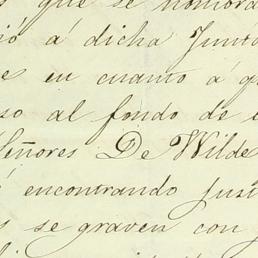 que se nombra
ió á dicha Junta
e en cuanto á q
so al fondo de
Señores De Wilde
encontrando just
s se graven con